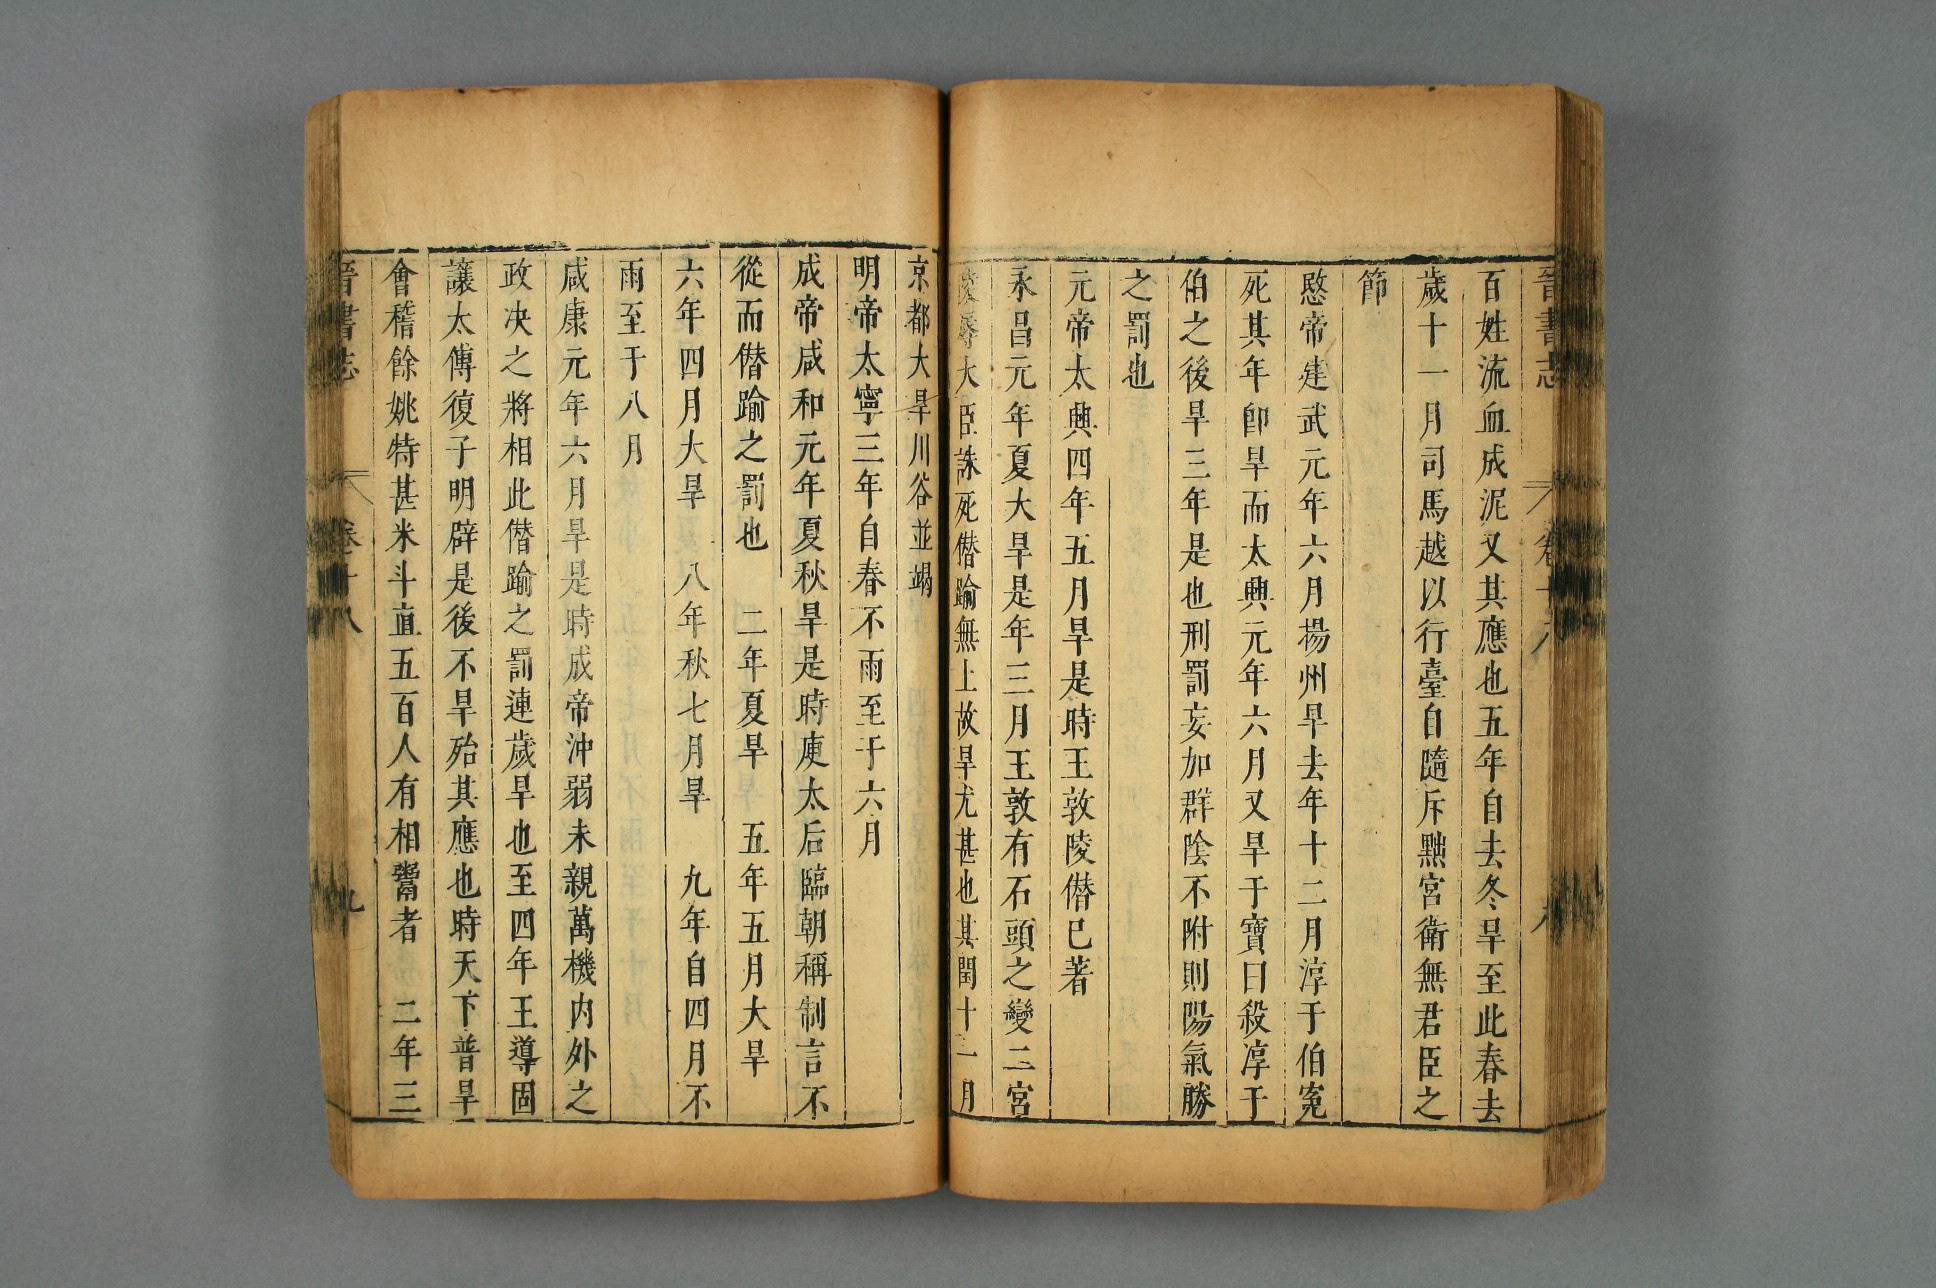 晉書志 卷十八 八
百姓流血成泥又其應也五年自去冬旱至此春去
歲十一月司馬越以行臺自隨斥黜宮衛無君臣之
節
愍帝建武元年六月揚州旱去年十二月淳于伯冤
死其年卽旱而太興元年六月又旱于寶曰殺淳于
伯之後旱三年是也刑罰妄加群陰不附則陽氣勝
之罰也
元帝太興四年五月旱是時王敦陵僣已著
永昌元年夏大旱是年三月王敦有石頭之變二宮
陵辱大臣誅死僣踰無上故旱尤甚也其閏十一月
京都大旱川谷並竭
明帝太寧三年自春不雨至于六月
成帝咸和元年夏秋旱是時庾太后臨朝稱制言不
從而僣踰之罰也 二年夏旱 五年五月大旱
六年四月大旱 八年秋七月旱 九年自四月不
雨至于八月
咸康元年六月旱是時成帝沖弱未親萬機內外之
政决之將相此僣踰之罰連歲旱也至四年王導固
讓太傅復子明辟是後不旱殆其應也時天下普旱
會稽餘姚特甚米斗直五百人有相鬻者 二年三
晉書志 卷十八 九